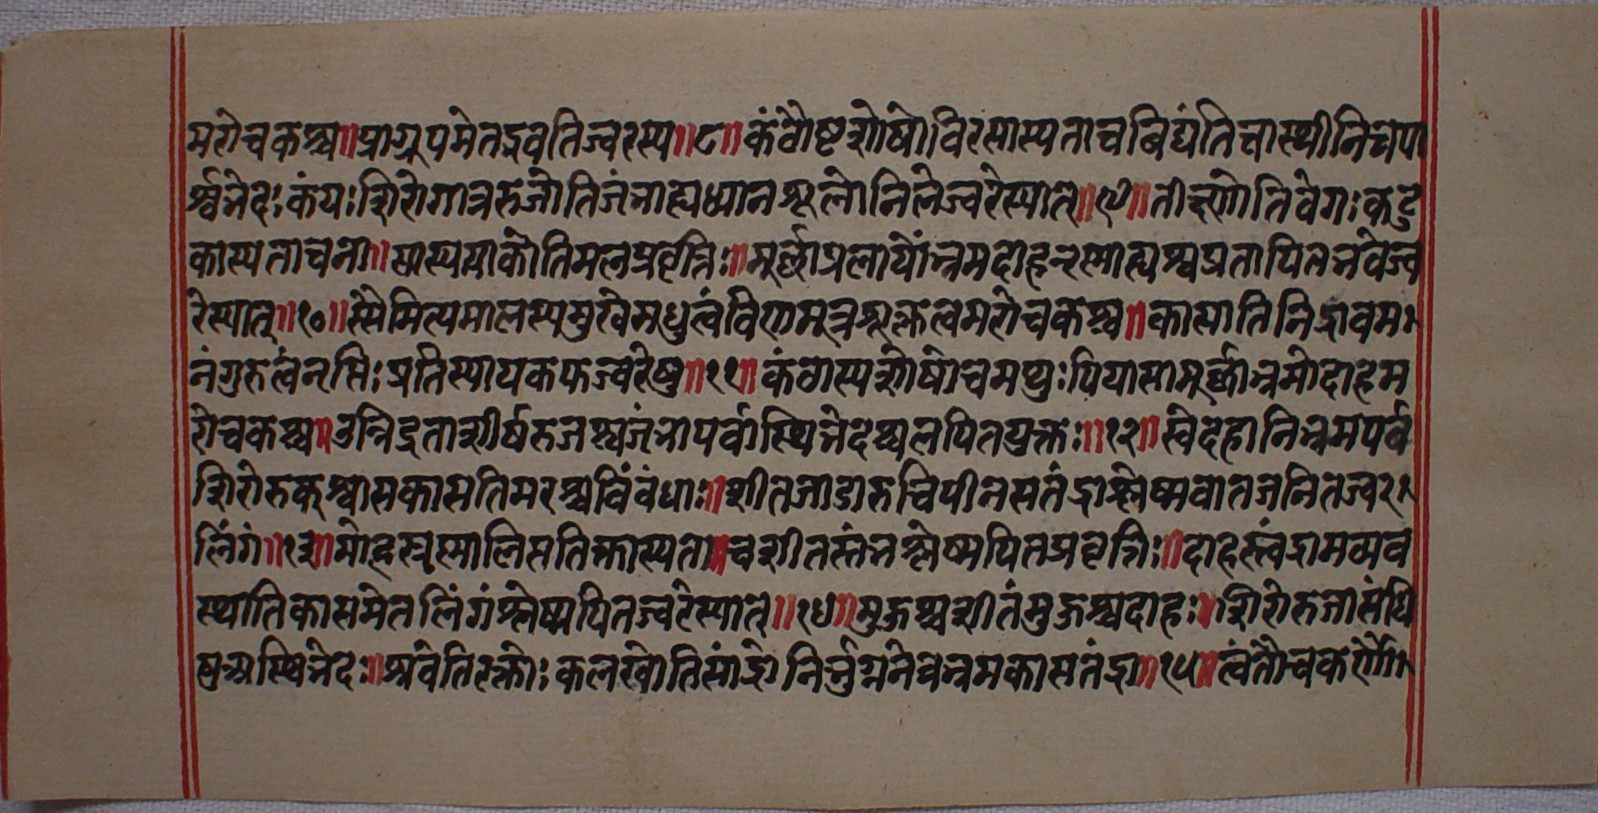 मरोचकश्च॥प्राग्रूपमेतद्भवतिज्वरस्य॥८॥कंठोष्टशोषोविरसास्यताचविद्यंतिचास्थीनिचपा
र्श्वभेदः कंपः शिरोगात्ररुजोतिजंभाह्यध्मानशूलोनिलेज्वरेस्यात्॥९॥तीक्ष्णोतिवेगः कटु
कास्यताचना॥सास्यपाकोतिमलप्रवृत्तिः॥मूर्छाप्रलापोभ्रमदाहतृस्माह्यश्चप्रतापित्तभवेज्व
रेस्यात्॥१०॥स्तैमित्यमालस्यमुखेमधुत्वंविण्मूत्रशूक्लत्वमरोचकश्च॥कासातिनिद्रावम
नंगुरुत्वंतृप्तिः प्रतिस्यायकफज्वरेषु॥११॥कंठास्यशोषोचमथुः पिपासामूर्छाभ्रमोदाहम
रोचकश्च॥उन्निद्रताशीर्षरुजश्चजंभापर्वास्थिभेदश्चलपित्तयुक्तः॥१२॥स्वेदहानिभ्रमपर्व
शिरोरुकश्वासकासतिमरश्चविंवंधाः॥शीतजाडारुचिपीनसतंद्राश्लेष्मवातजनितज्वर
लिंगं॥१३॥मोहस्त्रस्मालिप्ततिक्तास्यताचशीतस्तंभश्लेष्मपित्तप्रवृत्तिः॥दाहस्त्वंद्रामव्यव
स्थातिकासमेतलिंगंश्लेष्मपित्तज्वरेस्यात्॥१४॥मुऊश्चशीतंमुऊश्चदाहः॥शिरोरुजासंधि
षुअस्थिभेदः॥श्रवेतिरक्तोः कलखोतिसांद्रोनिर्भुग्ननेत्रभ्रमकासतंद्रा॥१५॥त्वंतौचकरोगै